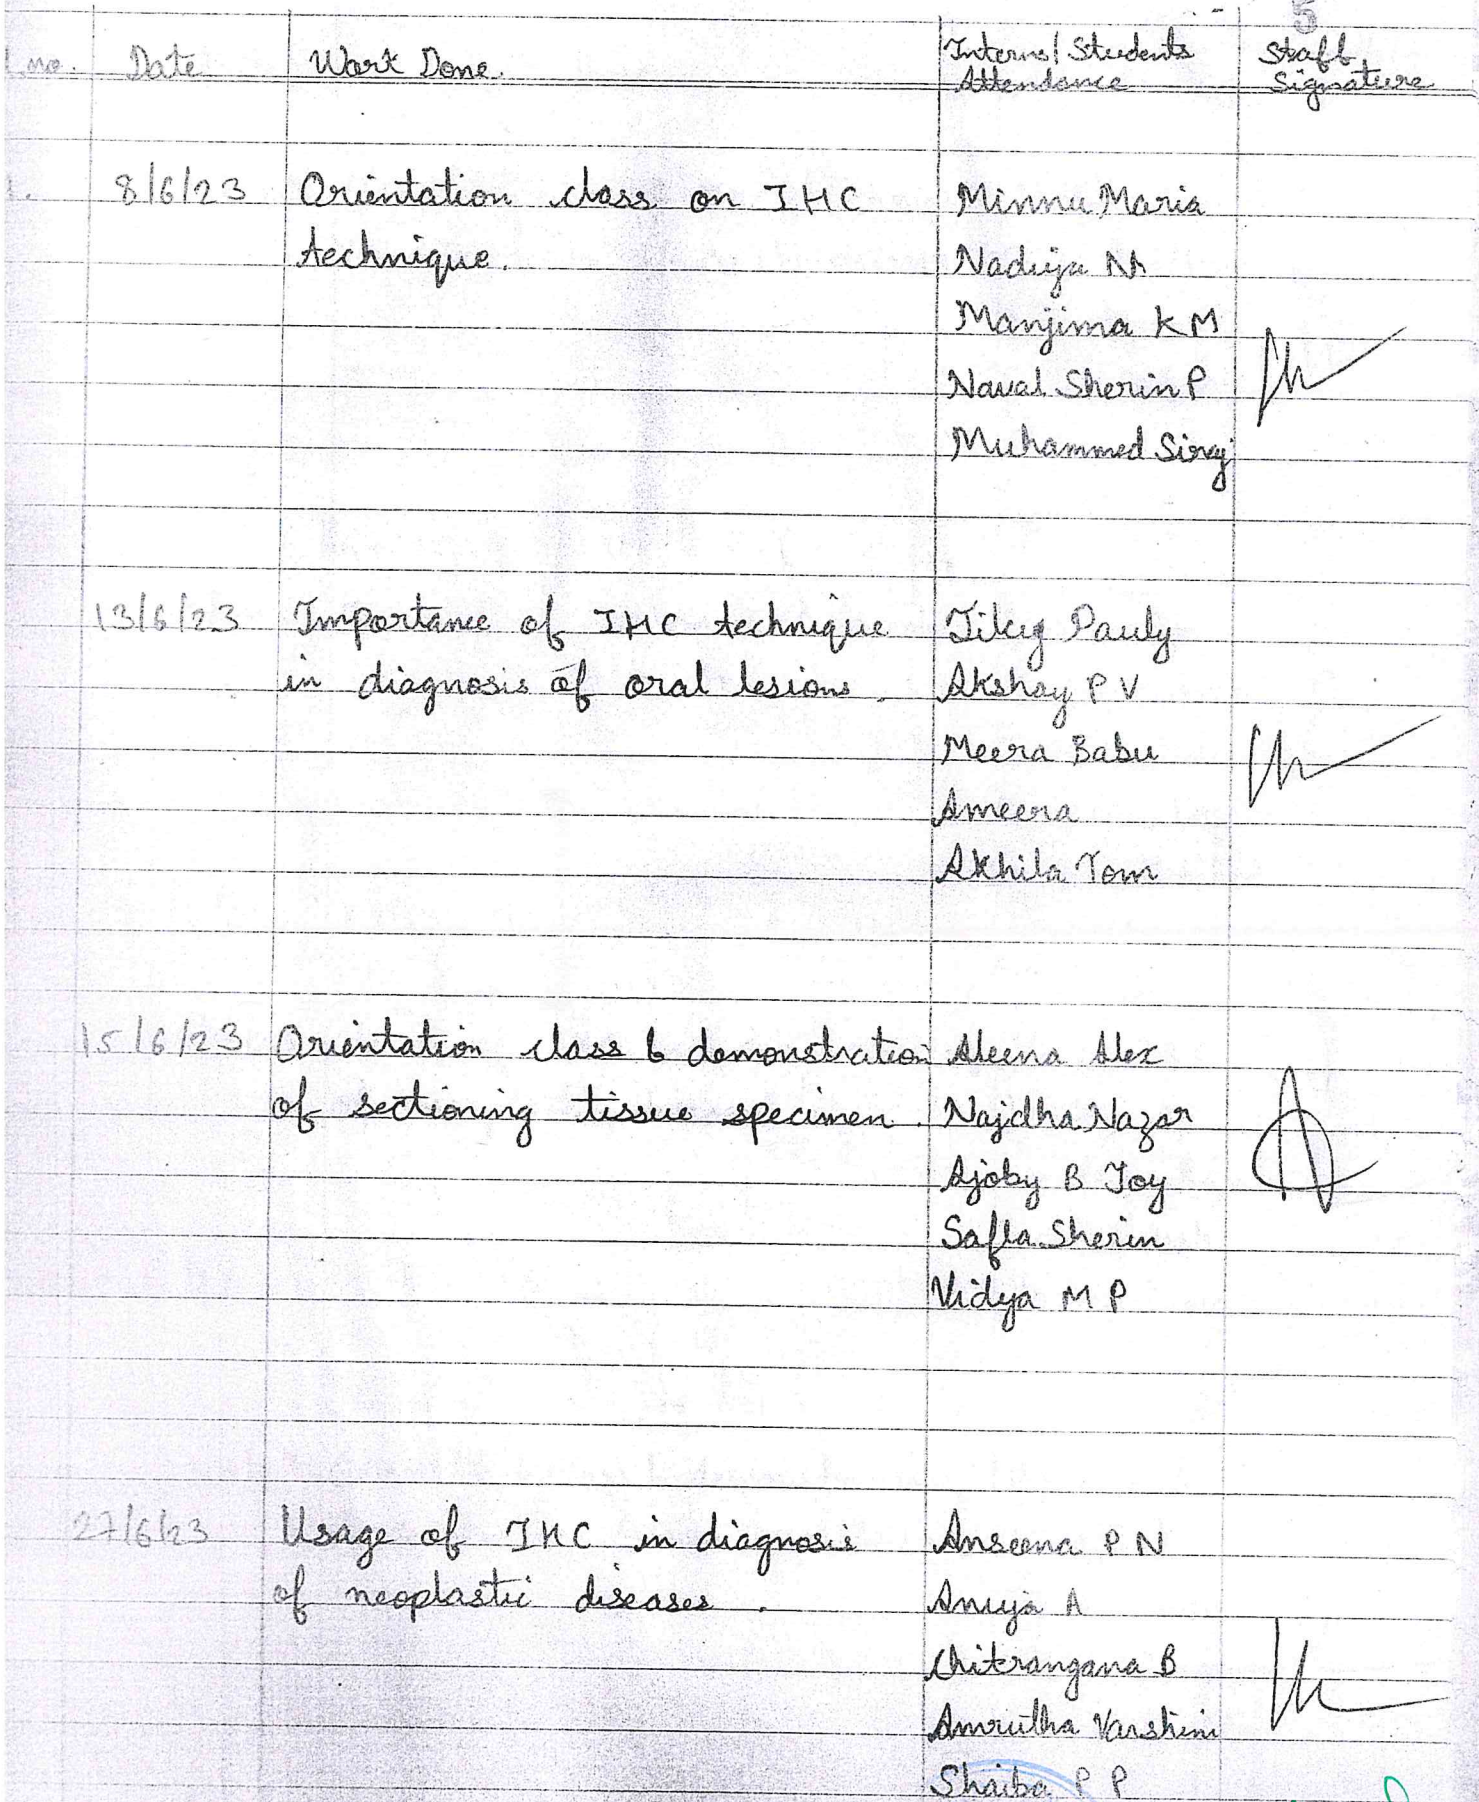 5
no. Date Work Done. Interns/Students Staff
Attendance Signature
1. 8/6/23 Orientation class on IHC Minnu Maria
technique. Nadiya N
Manjima K M
Naval Sherin P
Muhammed Siraj
13/6/23 Importance of IHC technique Pauly
in diagnosis of oral lesions. Akshay P V
Meera Babu
Ameera
Akhila Tom
15/6/23 Orientation class & demonstration Aleena Alex
of sectioning tissue specimen. Najdha Nazar
Ajoby B Joy
Safla Sherin
Vidya M P
27/6/23 Usage of IHC in diagnosis Anseena P N
of neoplastic diseases. Anuja A
Chitrangana B
Amrutha Varshini
Shaiba P P